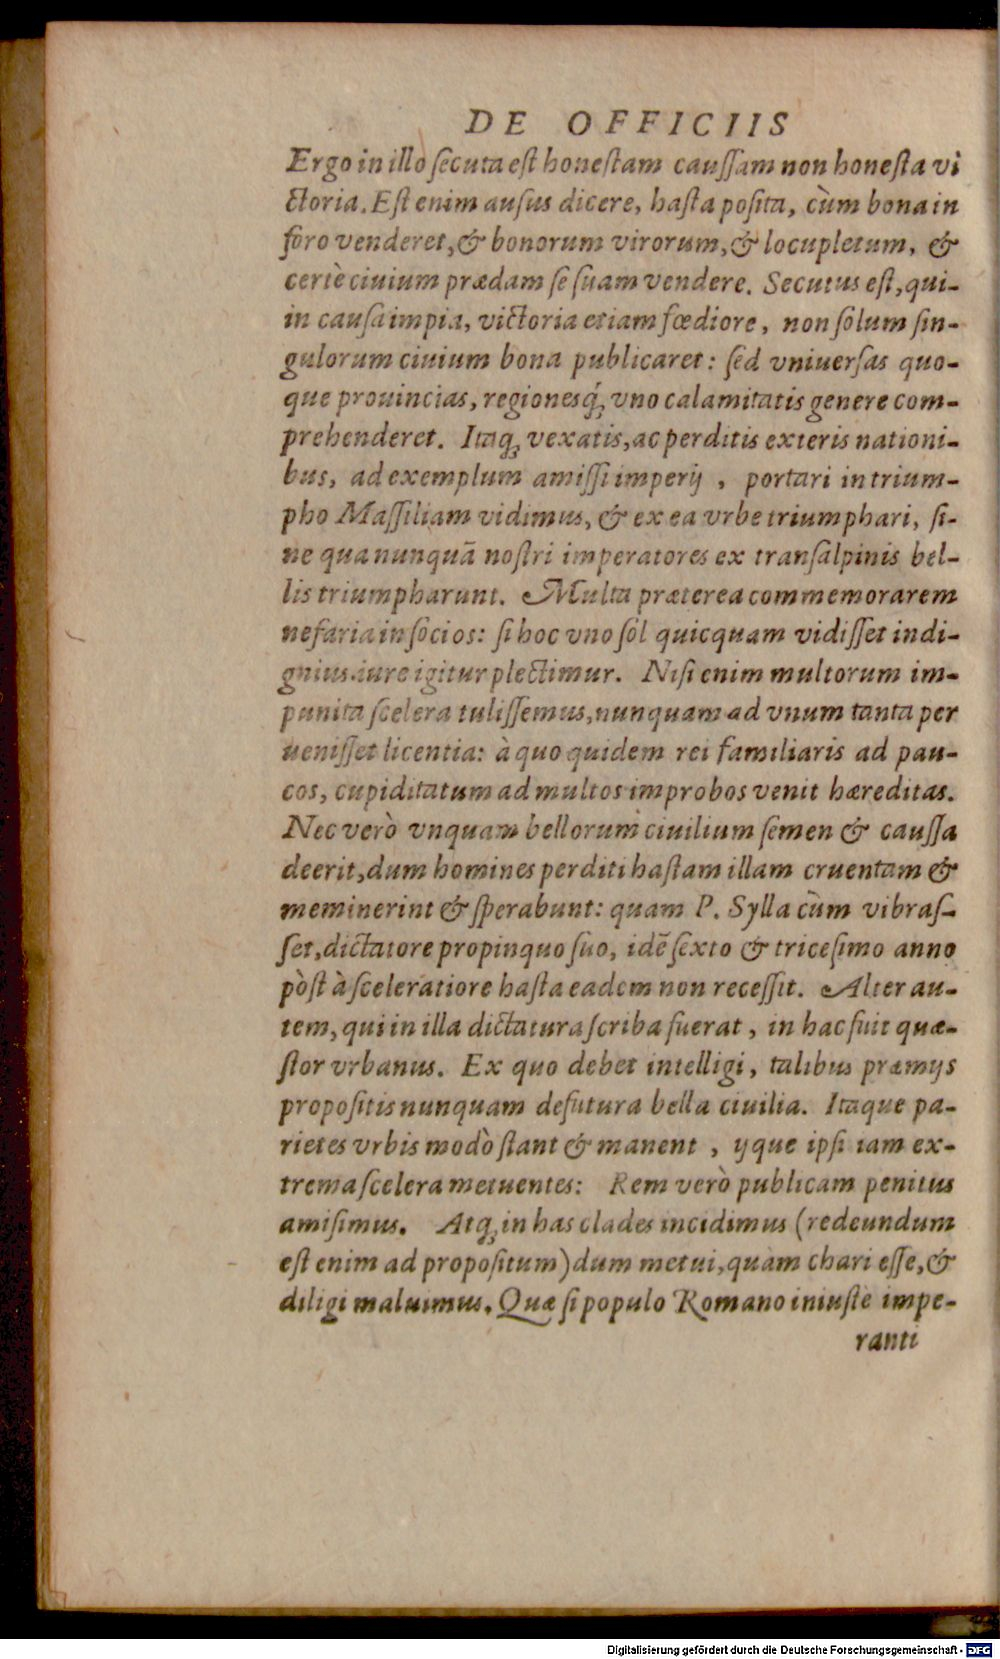 DE OFFICIIS
Ergo in illo ſecuta eſt honeſtam cauſſam non honeſta vi
ctoria. Eſt enim auſus dicere, haſta poſita, cùm bona in
foro venderet, & bonorum virorum, & locupletum, &
certè ciuium prædam ſe ſuam vendere. Secutus eſt, qui-
in cauſa impia, victoria etiam fœdiore, non ſolum ſin-
gulorum ciuium bona publicaret: ſed vniuerſas quo-
que prouincias, regionesq́; vno calamitatis genere com-
prehenderet. Itaq; vexatis, ac perditis exteris nationi-
bus, ad exemplum amiſſi imperij , portari in trium-
pho Maſſiliam vidimus, & ex ea vrbe triumphari, ſi-
ne qua nunquã noſtri imperatores ex tranſalpinis bel-
lis triumpharunt. Multa præterea commemorarem
nefaria in ſocios: ſi hoc vno ſol quicquam vidiſſet indi-
gnius. iure igitur plectimur. Niſi enim multorum im-
punita ſcelera tuliſſemus, nunquam ad vnum tanta per
ueniſſet licentia: à quo quidem rei familiaris ad pau-
cos, cupiditatum ad multos improbos venit hæreditas.
Nec verò vnquam bellorum ciuilium ſemen & cauſſa
deerit, dum homines perditi haſtam illam cruentam &
meminerint & ſperabunt: quam P. Sylla cùm vibraſ-
ſet, dictatore propinquo ſuo, idẽ ſexto & triceſimo anno
pòſt à ſceleratiore haſta eadem non receſſit. Alter au-
tem, qui in illa dictatura ſcriba fuerat, in hac fuit quæ-
ſtor vrbanus. Ex quo debet intelligi, talibus præmijs
propoſitis nunquam defutura bella ciuilia. Itaque pa-
rietes vrbis modò ſtant & manent , ijque ipſi iam ex-
trema ſcelera metuentes: Rem verò publicam penitus
amiſimus. Atq; in has clades incidimus (redeundum
eſt enim ad propoſitum) dum metui, quàm chari eſſe, &
diligi maluimus. Quæ ſi populo Romano iniuſtè impe-
ranti
Digitalisierung gefördert durch die Deutsche Forschungsgemeinschaft - DFG